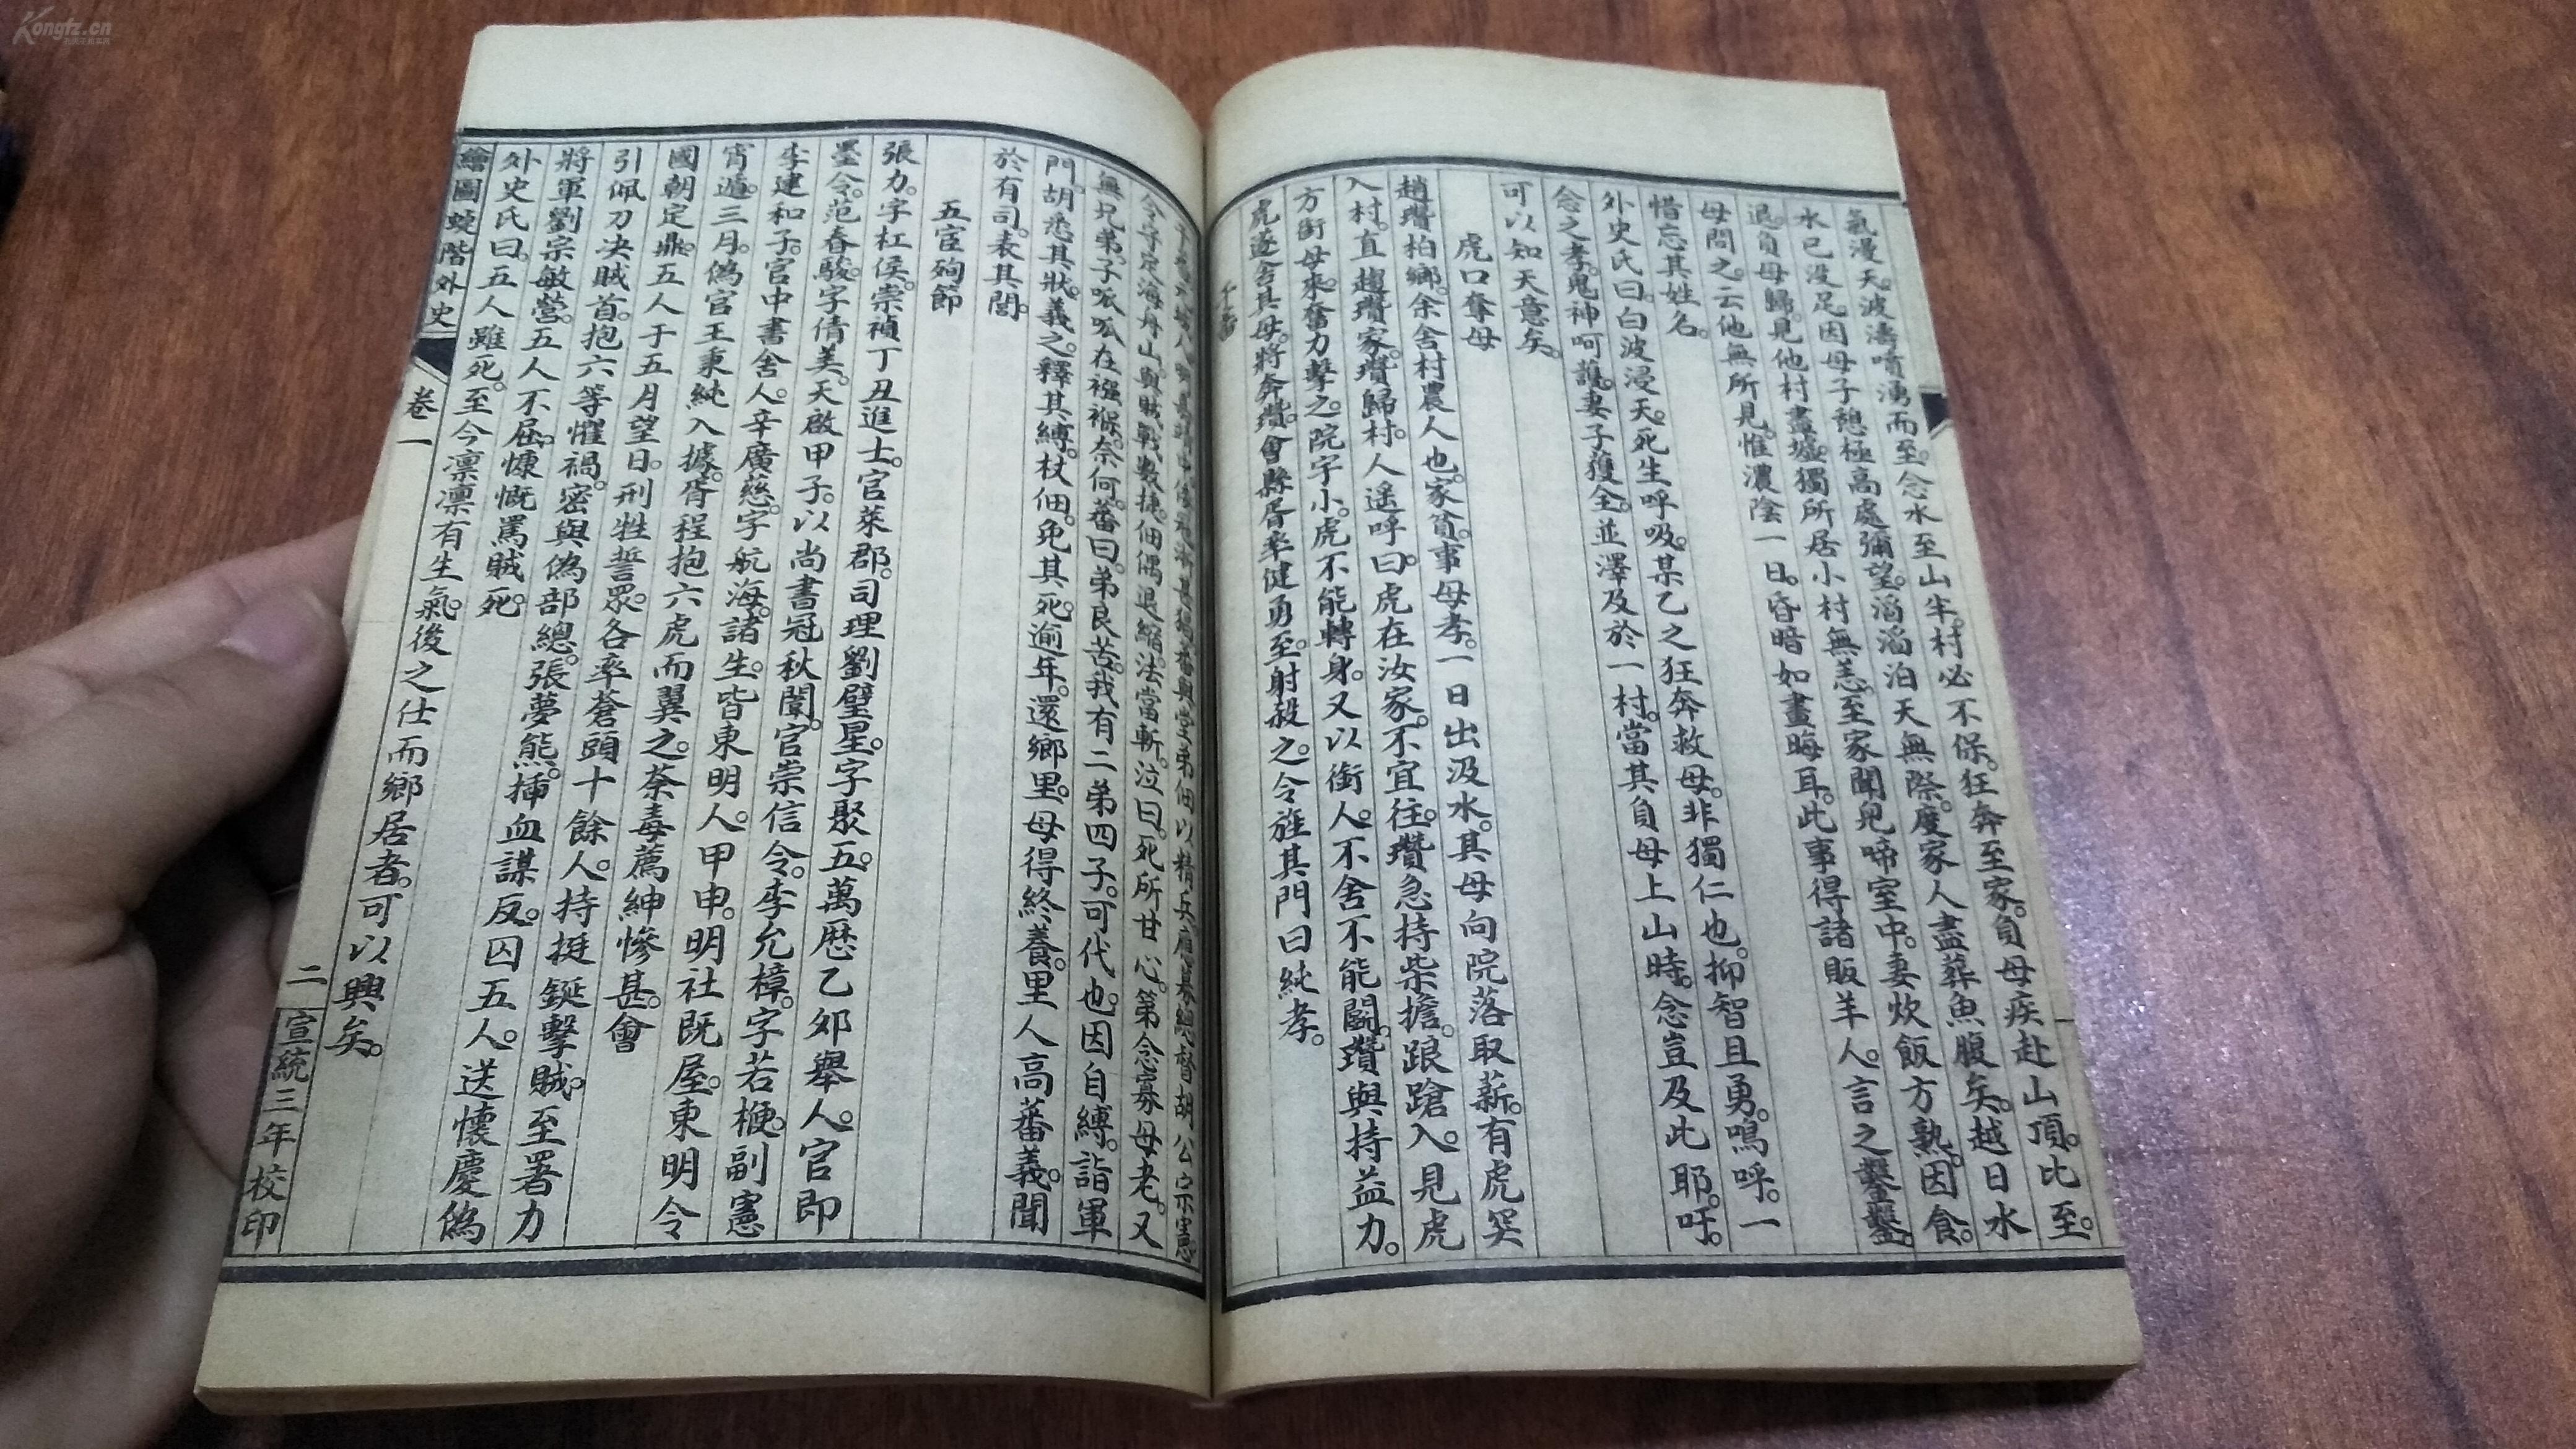 氣漫天。波濤噴湧而至。念水至山半。村必不保。狂奔至家。負母疾赴山頂。比至。
水已没足。因母子憩極高處。彌望滔滔。泊天無際。度家人盡葬魚腹矣。越日水
退。負母歸。見他村盡墟。獨所居小村無恙。至家。聞兒啼室中。妻炊飯方熟。因食。
母問之。云他無所見。惟濃陰一日。昏暗如晝晦耳。此事得諸販羊人。言之鑿鑿。
惜忘其姓名。
外史氏曰。白波浸天。死生呼吸。某乙之狂奔救母。非獨仁也。抑智且勇。鳴呼。一
念之孝。鬼神呵護。妻子獲全。並澤及於一村。當其負母上山時。念豈及此耶。吁。
可以知天意矣。
虎口奪母
趙瓚柏鄉。余舍村農人也。家貧。事母孝。一日出汲水。其母向院落取薪。有虎突
入村。直趨瓚家。瓚歸。村人遥呼曰。虎在汝家。不宜往。瓚急持柴擔。踉蹌入。見虎
方銜母來。奮力擊之。院宇小。虎不能轉身。又以銜人。不舍不能鬭。瓚與持益力。
虎遂舍其母。將奔瓚。會縣胥率健勇至。射殺之。令旌其門曰純孝。
令守定海舟山。與賊戰數捷。佃偶退縮。法當斬。泣曰。死所甘心。第念寡母老。又
無兄弟。子呱呱在襁褓。奈何。蕃曰。弟良苦。我有二弟四子。可代也。因自縛。詣軍
門。胡悉其狀。義之。釋其縛。杖佃。免其死。逾年。還鄉里。母得終養。里人高蕃義。聞
於有司。表其閭。
五宦殉節
張力。字杠侯。崇禎丁丑進士。官萊郡。司理劉璧星。字聚五。萬歷乙卯舉人。官即
墨令。范春駿。字倩美。天啟甲子。以尚書冠秋闈。官崇信令。李允樟。字若梗。副憲
李建和子。官中書舍人。辛廣慈。字航海。諸生。皆東明人。甲申。明社既屋。東明令
宵遁。三月。偽官王秉純入據。胥程抱六虎而翼之。荼毒薦紳慘甚。會
國朝定鼎。五人于五月望日。刑牲誓眾。各率蒼頭十餘人。持挺鋋擊賊。至署。力
引佩刀决賊首。抱六等懼禍。密與偽部總。張夢熊。插血謀反。囚五人。送懷慶偽
將軍劉宗敏營。五人不屈。慷慨罵賊死。
外史氏曰。五人雖死。至今凛凛有生氣。後之仕而鄉居者。可以興矣。
繪圖蜨階外史
卷一
二
宣統三年校印